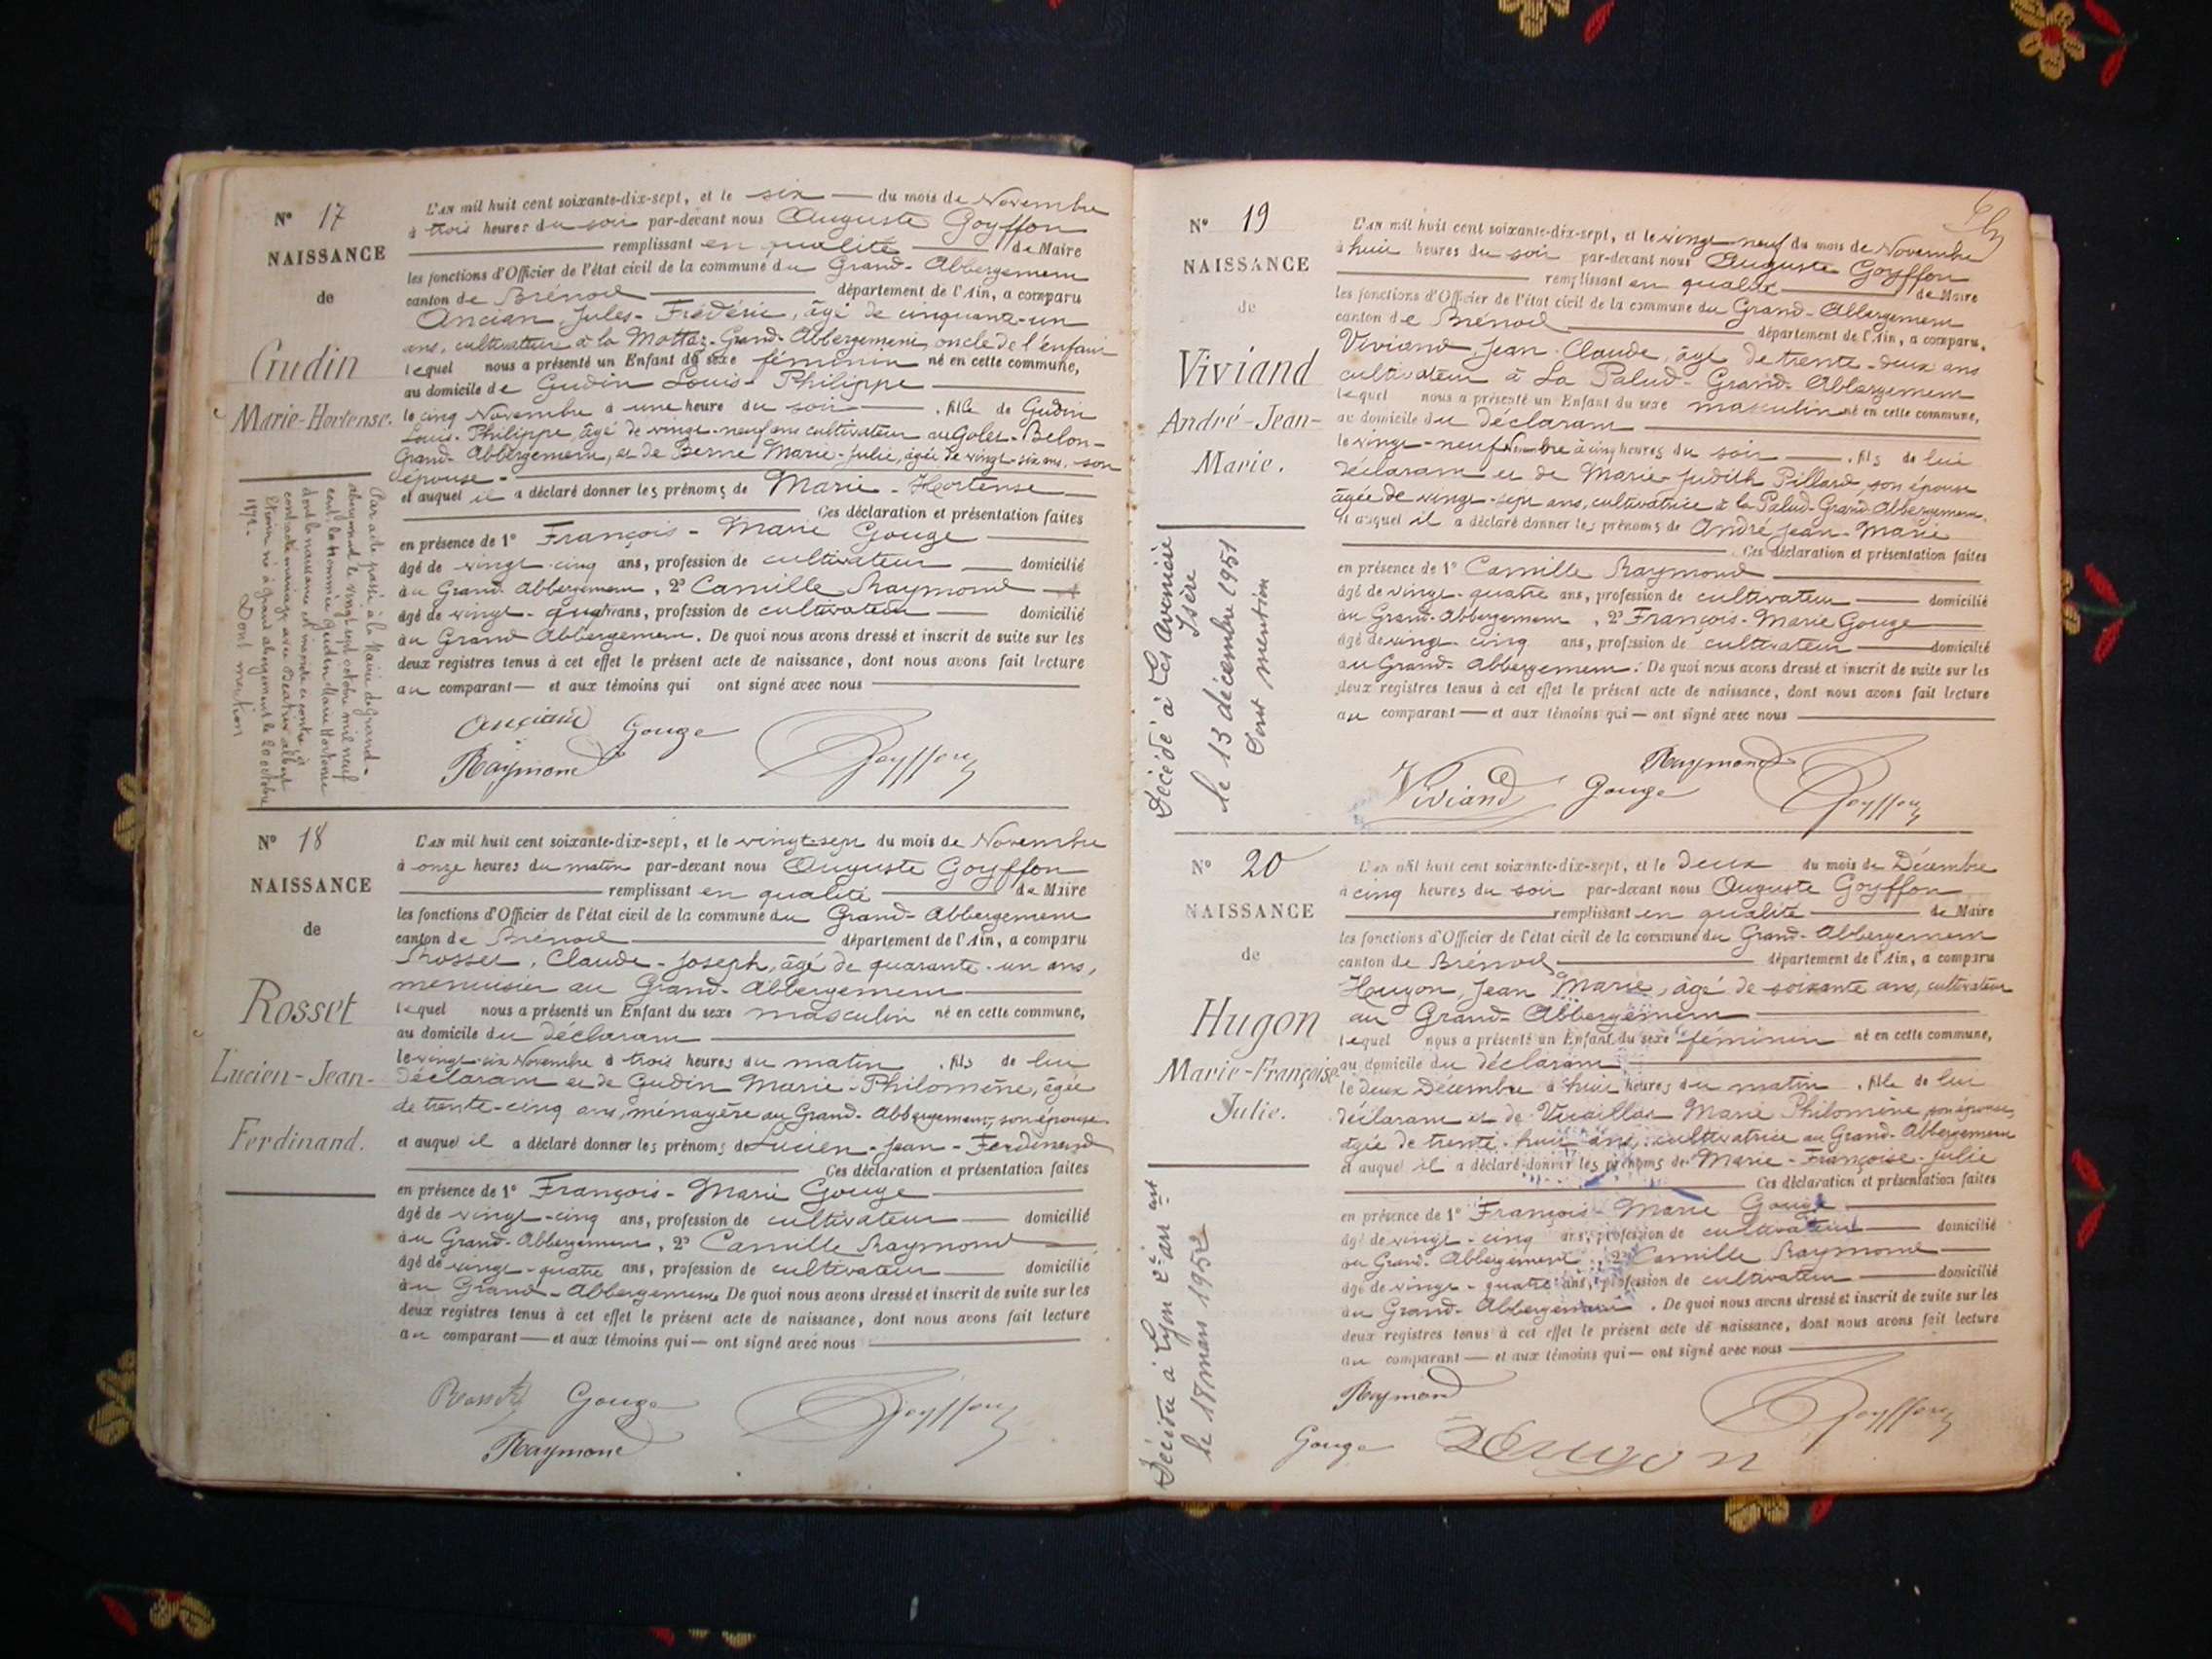 N° 17
NAISSANCE
de
Gudin
Marie-Hortense.
L'an mil huit cent soixante-dix-sept, et le six du mois de Novembre
à trois heures du soir par-devant nous Auguste Goyffon
remplissant en qualité de Maire
les fonctions d'Officier de l'état civil de la commune du Grand-Abbergement
canton de Brénod département de l'Ain, a comparu
Ancian, Jules-Frédéric, âgé de cinquante-un
ans, cultivateur à la Motta-Grand-Abbergement, oncle de l'enfant
lequel nous a présenté un Enfant de sexe féminin né en cette commune,
au domicile de Gudin Louis-Philippe
le cinq Novembre à une heure du soir, fille de Gudin
Louis-Philippe, âgé de vingt-neuf ans cultivateur au Golet-Belon-
Grand-Abbergement, et de Berne Marie-Julie, âgée de vingt-six ans, son
épouse
et auquel il a déclaré donner les prénoms de Marie-Hortense
Ces déclaration et présentation faites
en présence de 1° François-Marie Gouge
âgé de vingt-cinq ans, profession de cultivateur domicilié
au Grand-Abbergement, 2° Camille Raymond
âgé de vingt-quatre ans, profession de cultivateur domicilié
au Grand Abbergement. De quoi nous avons dressé et inscrit de suite sur les
deux registres tenus à cet effet le présent acte de naissance, dont nous avons fait lecture
au comparant et aux témoins qui ont signé avec nous
Ancian Gouge
Raymond Goyffon
Par acte passé à la Mairie de Grand-
abergement le vingt sept octobre mil neuf
cent, la nommée Gudin Marie Hortense
dont la naissance est inscrite ci contre, a
contracté mariage avec Béatrix Albert
Etienne né à Grand abergement le 20 octobre
1872.
Dont mention
N° 18
NAISSANCE
de
Rosset
Lucien-Jean-
Ferdinand.
L'an mil huit cent soixante-dix-sept, et le vingt-sept du mois de Novembre
à onze heures du matin par-devant nous Auguste Goyffon
remplissant en qualité de Maire
les fonctions d'Officier de l'état civil de la commune du Grand-Abbergement
canton de Brénod département de l'Ain, a comparu
Rosset, Claude-Joseph, âgé de quarante-un ans,
menuisier au Grand-Abbergement
lequel nous a présenté un Enfant du sexe masculin né en cette commune,
au domicile du déclarant
le vingt-six Novembre à trois heures du matin, fils de lui
déclarant et de Gudin Marie-Philomène, âgée
de trente-cinq ans, ménagère au Grand-Abbergement, son épouse
et auquel il a déclaré donner les prénoms de Lucien-Jean-Ferdinand
Ces déclaration et présentation faites
en présence de 1° François-Marie Gouge
âgé de vingt-cinq ans, profession de cultivateur domicilié
au Grand-Abbergement, 2° Camille Raymond
âgé de vingt-quatre ans, profession de cultivateur domicilié
au Grand-Abbergement De quoi nous avons dressé et inscrit de suite sur les
deux registres tenus à cet effet le présent acte de naissance, dont nous avons fait lecture
au comparant et aux témoins qui ont signé avec nous
Rosset Gouge Goyffon
Raymond
N° 19
NAISSANCE
de
Viviand
André-Jean-
Marie.
L'an mil huit cent soixante-dix-sept, et le vingt-neuf du mois de Novembre
à huit heures du soir par-devant nous Auguste Goyffon
remplissant en qualité de Maire
les fonctions d'Officier de l'état civil de la commune du Grand-Abbergement
canton de Brénod département de l'Ain, a comparu,
Viviand, Jean-Claude, âgé de trente-deux ans
cultivateur à La Palud-Grand-Abbergement
lequel nous a présenté un Enfant du sexe masculin né en cette commune,
au domicile du déclarant
le vingt-neuf Novembre à cinq heures du soir, fils de lui
déclarant et de Marie-Judith Pillard, son épouse
âgée de vingt-sept ans, cultivatrice à la Palud-Grand-Abbergement.
et auquel il a déclaré donner les prénoms de André-Jean-Marie
Ces déclaration et présentation faites
en présence de 1° Camille Raymond
âgé de vingt-quatre ans, profession de cultivateur domicilié
au Grand-Abbergement, 2° François-Marie Gouge
âgé de vingt-cinq ans, profession de cultivateur domicilié
au Grand-Abbergement. De quoi nous avons dressé et inscrit de suite sur les
deux registres tenus à cet effet le présent acte de naissance, dont nous avons fait lecture
au comparant et aux témoins qui ont signé avec nous
Raymond
Viviand Gouge Goyffon
Décédé à Les Avenières
Isère
le 13 décembre 1951
Dont mention
N° 20
NAISSANCE
de
Hugon
Marie-Françoise
Julie.
L'an mil huit cent soixante-dix-sept, et le deux du mois de Décembre
à cinq heures du soir par-devant nous Auguste Goyffon
remplissant en qualité de Maire
les fonctions d'Officier de l'état civil de la commune du Grand-Abbergement
canton de Brénod département de l'Ain, a comparu
Hugon, Jean Marie, âgé de soixante ans, cultivateur
au Grand-Abbergement
lequel nous a présenté un Enfant du sexe féminin né en cette commune,
au domicile du déclarant
le deux Décembre à huit heures du matin, fille de lui
déclarant et de Vuaillat Marie Philomène son épouse,
âgée de trente-huit ans, cultivatrice au Grand-Abbergement
et auquel il a déclaré donner les prénoms de Marie-Françoise-Julie
Ces déclaration et présentation faites
en présence de 1° François Marie Gouge
âgé de vingt-cinq ans, profession de cultivateur domicilié
au Grand-Abbergement, 2° Camille Raymond
âgé de vingt-quatre ans, profession de cultivateur domicilié
au Grand-Abbergement. De quoi nous avons dressé et inscrit de suite sur les
deux registres tenus à cet effet le présent acte de naissance, dont nous avons fait lecture
au comparant et aux témoins qui ont signé avec nous
Raymond Goyffon
Gouge Hugon
Décédée à Lyon 2e arr
le 18 mars 1952